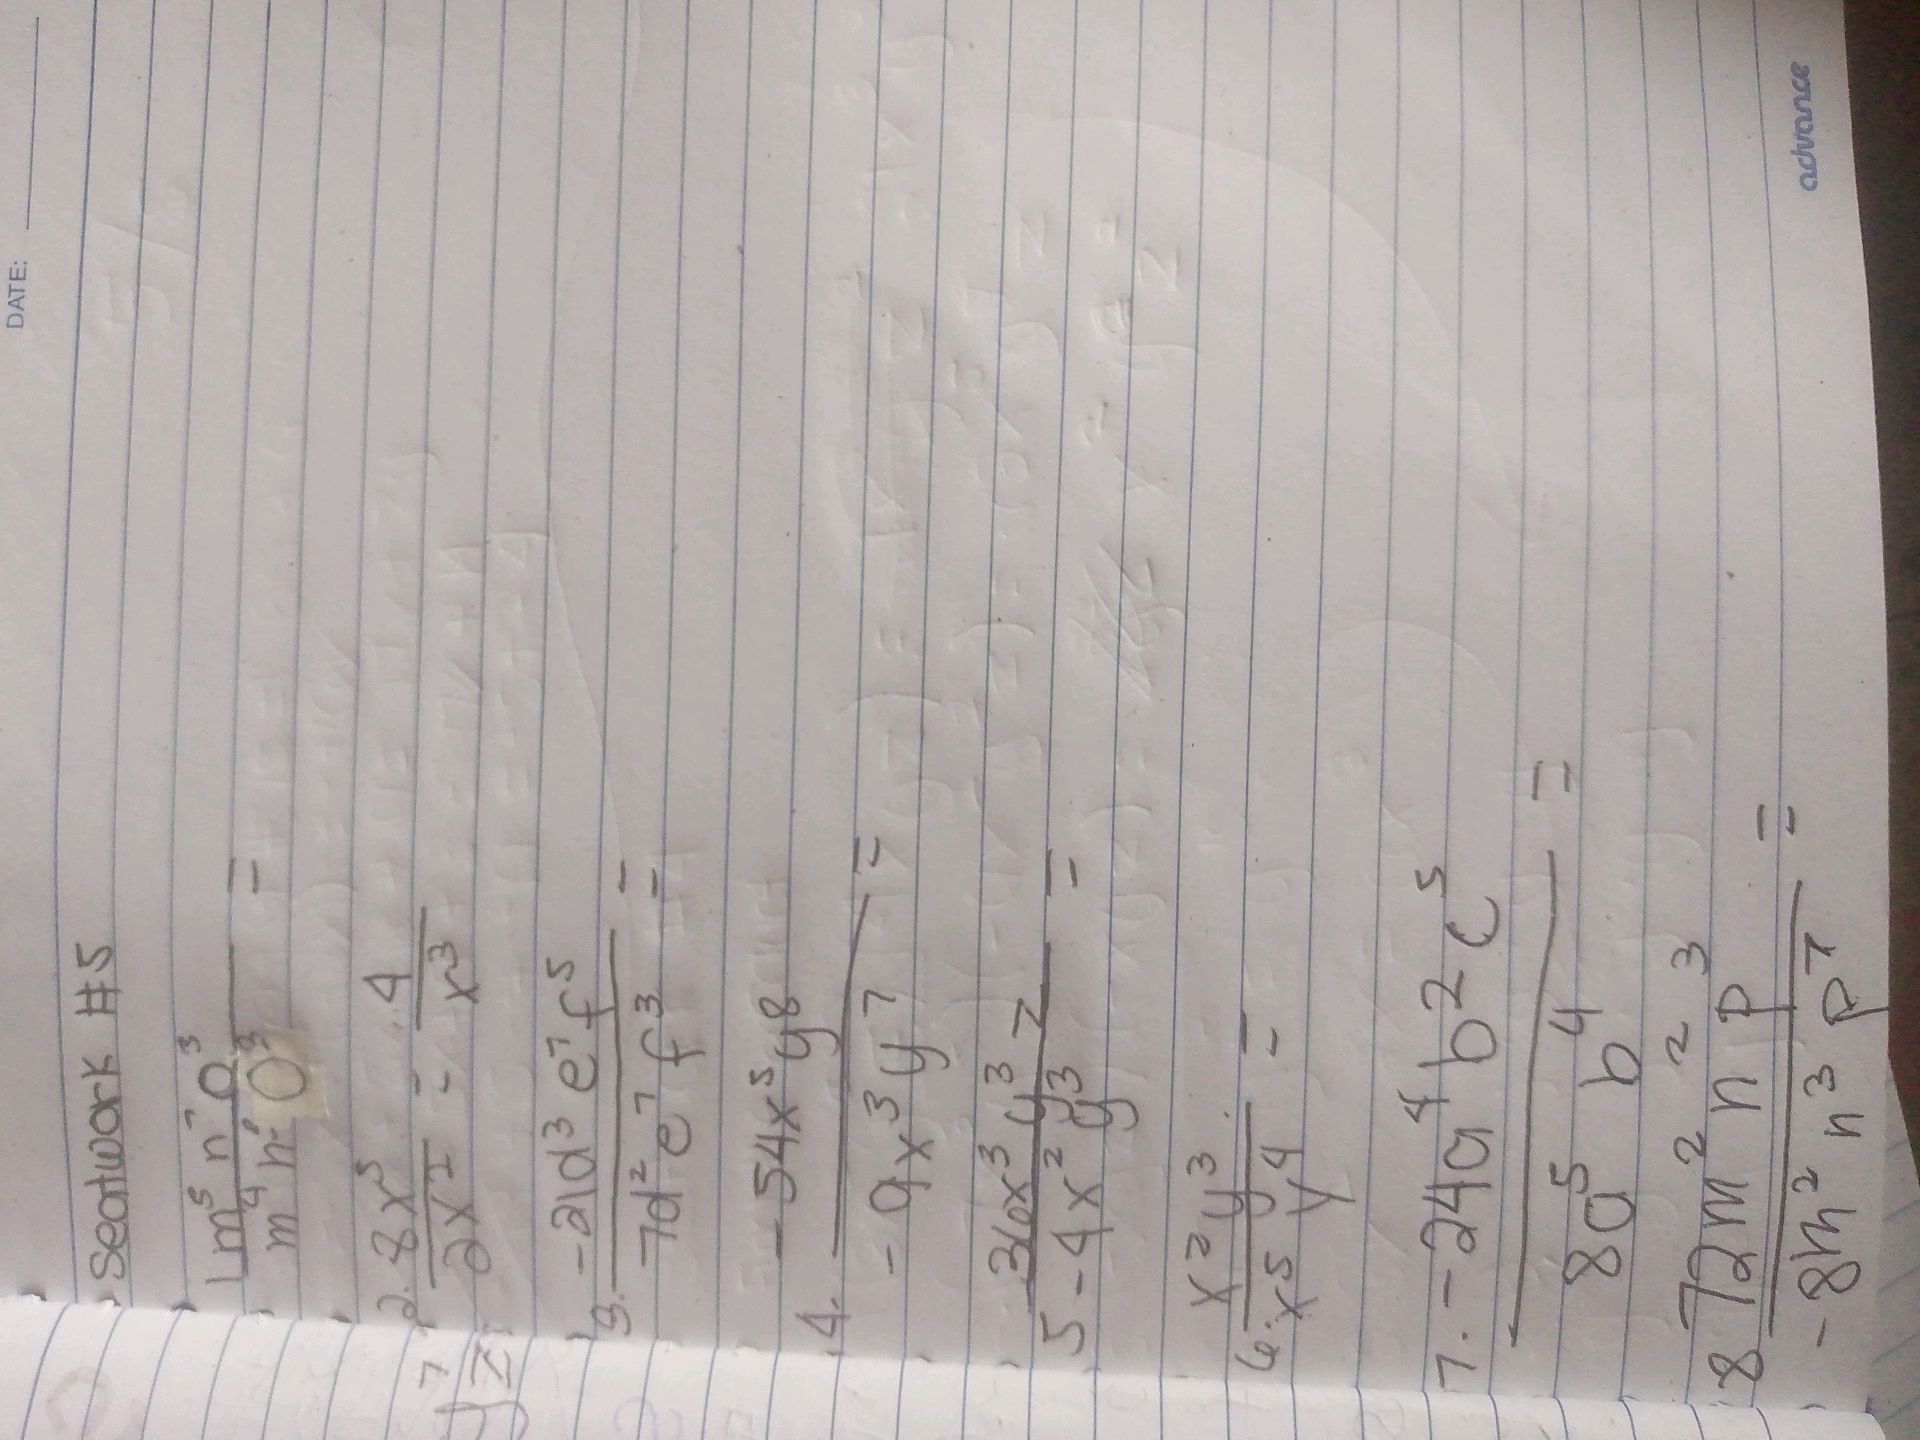 DATE:
Seatwork #5
1. m⁵ n⁷ o³ =
m⁴ n⁶ o³
2. 8x⁵ = 4
2x² x³
3. -21d³ e⁷ f⁵ =
7d² e⁷ f³
4. -54x⁵ y⁸ =
-9x³ y⁷
5 36x³ y³ z =
-4x² y³
6. x² y³ =
x⁵ y⁴
7. -24a⁴ b2 c⁵ =
8a⁵ b⁴
8 72m² n² p³ =
-8m² n³ p⁷
advance